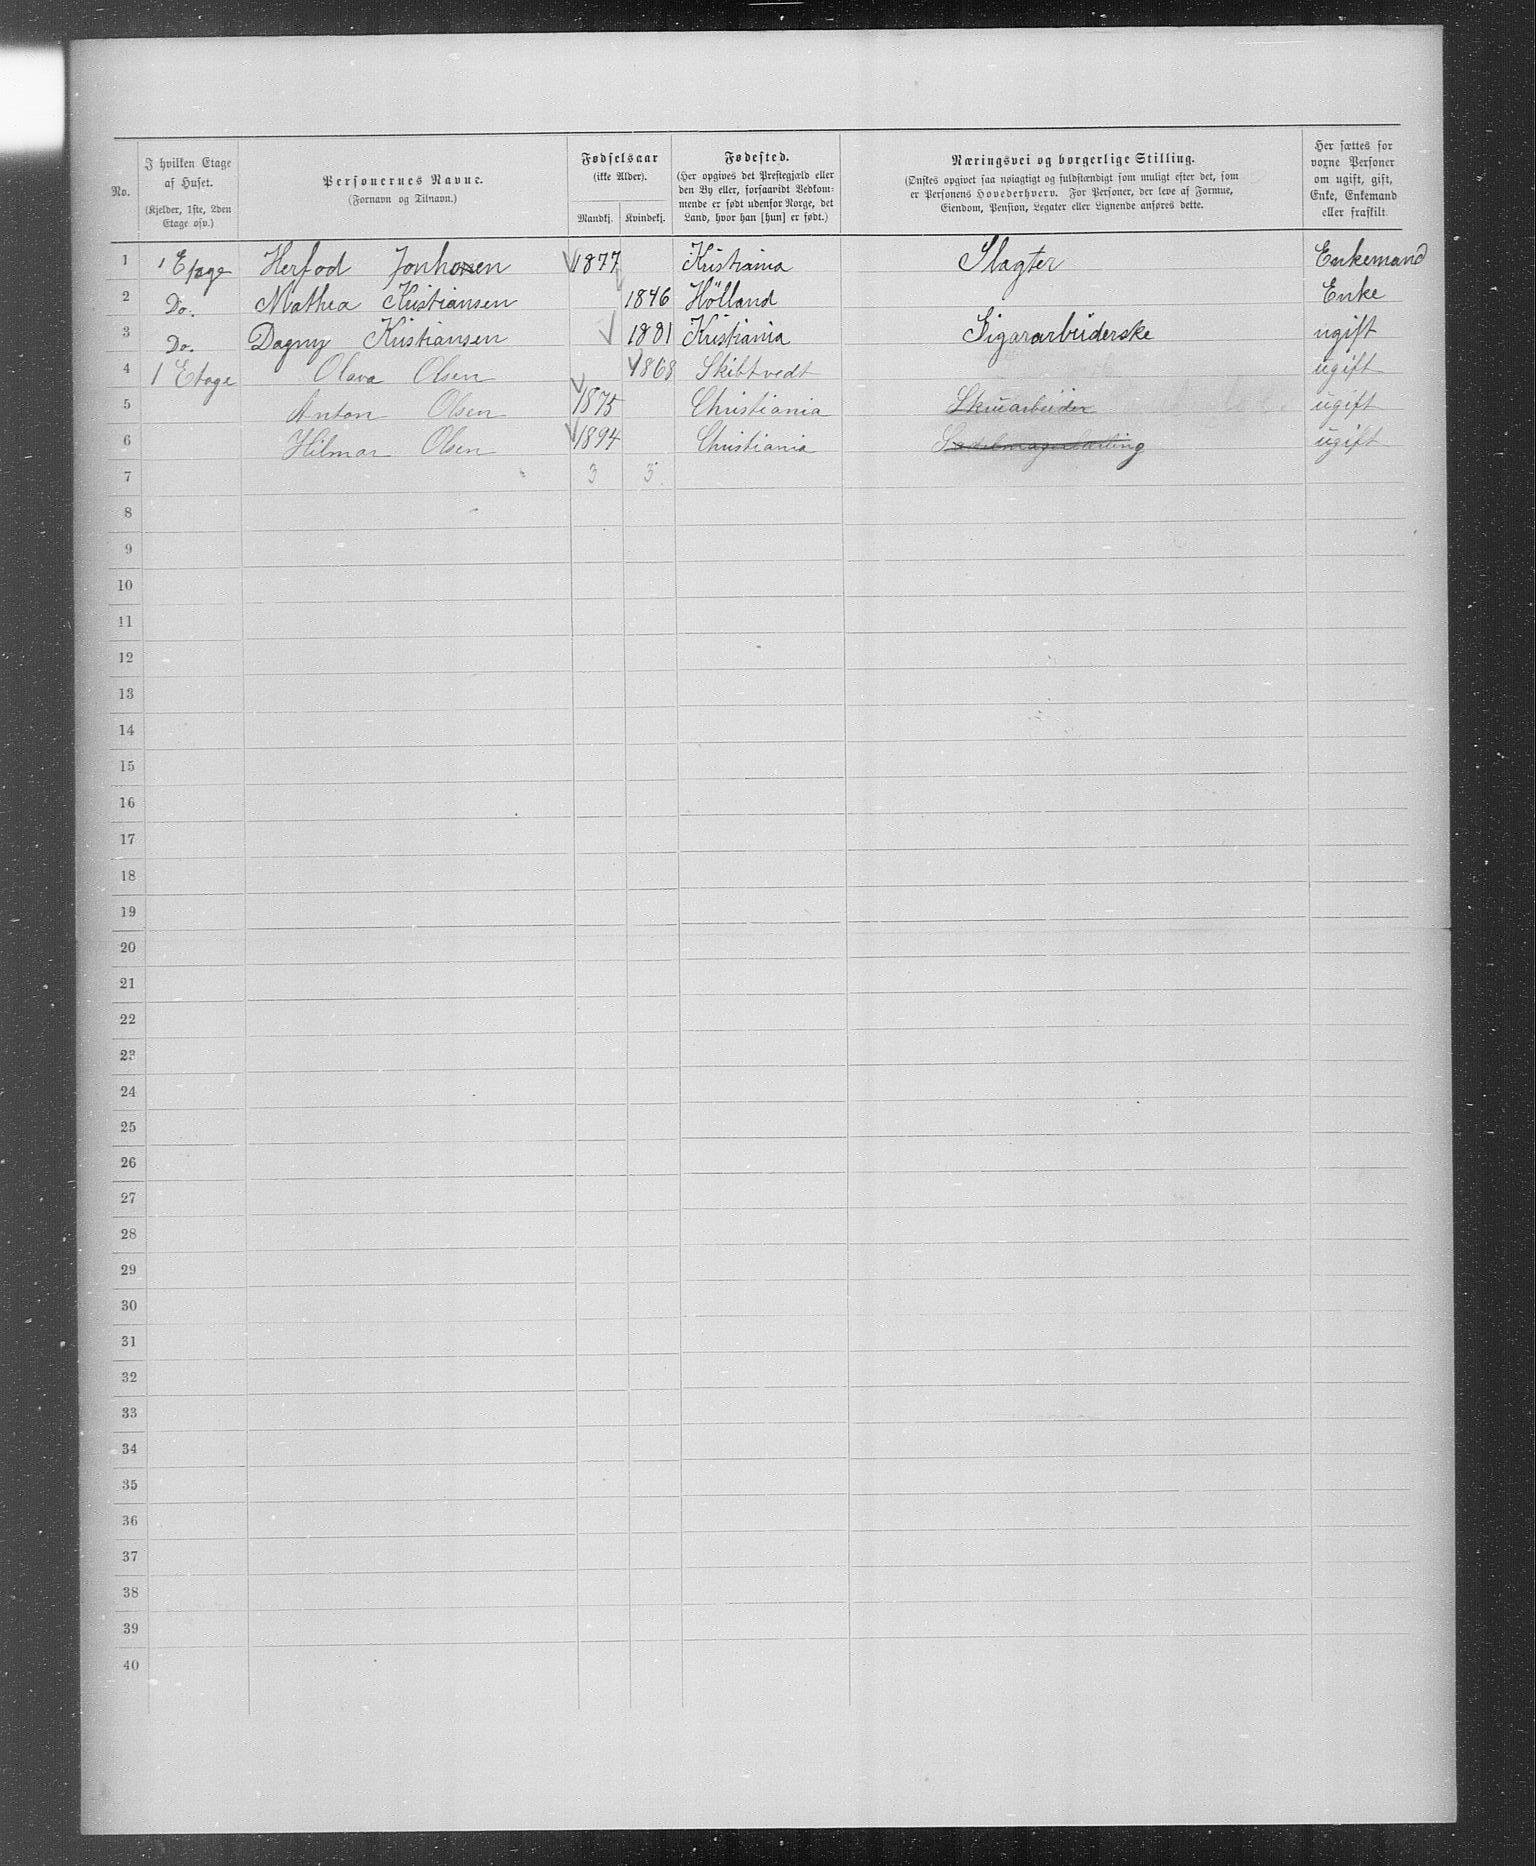 No. | I hvilken Etage af Huset. (Kjelder, 1ste, 2den Etage osv.) | Personernes Navne. (Fornavn og Tilnavn.) | Fødselsaar (ikke Alder). Mandkj. | Kvindekj. | Fødested. (Her opgives det Prestegjæld eller den By eller, forsaavidt Vedkommende er født udenfor Norge, det Land, hvor han [hun] er født.) | Næringsvei og borgerlige Stilling. (Ønskes opgivet saa nøiagtigt og fuldstændigt som muligt efter det, som er Personens Hovederhverv. For Personer, der leve af Formue, Eiendom, Pension, Legater eller Lignende anføres dette. | Her sættes for voxne Personer om ugift, gift, Enke, Enkemand eller fraskilt.
1 | 1 Etage | Herfod Jonhonen | 1877 | | Kristiania | Slagter | Enkemand
2 | Do. | Mathea Kristiansen | | 1846 | Hölland | | Enke
3 | Do. | Dagny Kristiansen | | 1881 | Kristiania | Sigararbeiderske | ugift
4 | 1 Etage | Olava Olsen | | 1868 | Skibtvedt | | ugift
5 | | Anton Olsen | 1875 | | Christiania | Skruarbeider | ugift
6 | | Hilmar Olsen | 1894 | | Christiania | Sadelmagerlærling | ugift
7 | | | 3 | 3
8
9
10
11
12
13
14
15
16
17
18
19
20
21
22
23
24
25
26
27
28
29
30
31
32
33
34
35
36
37
38
39
40